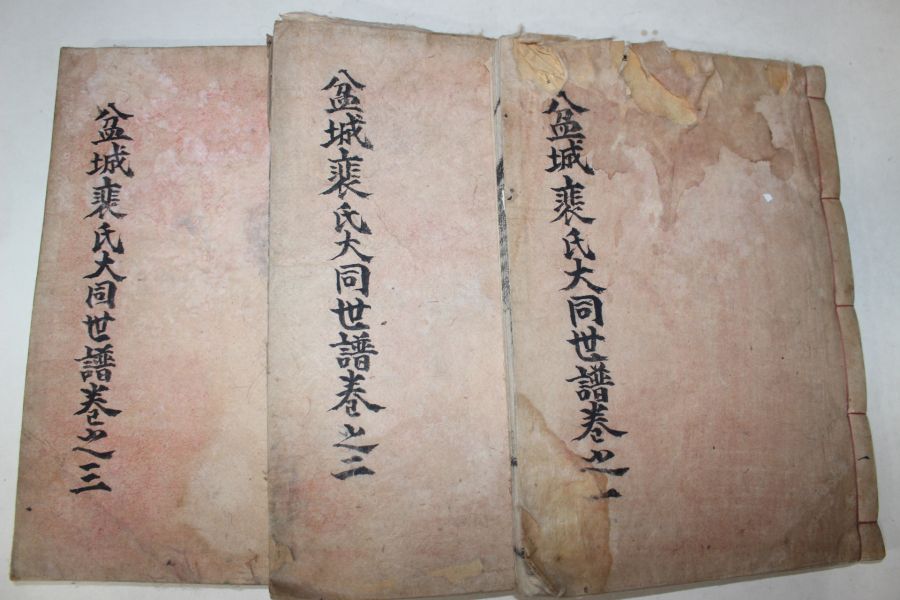 盆城裵氏大同世譜卷之一
盆城裵氏大同世譜卷之二
盆城裵氏大同世譜卷之三